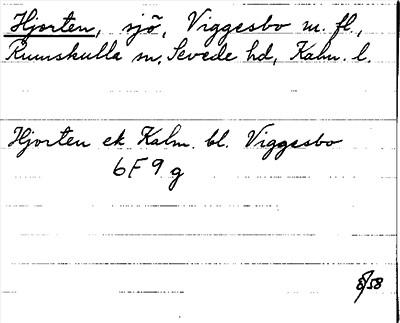 Hjorten, sjö, Viggesbo m. fl.,
Rumskulla sn, Sevede hd, Kalm. l.
Hjorten ek Kalm. bl. Viggesbo
6F9g
8/58